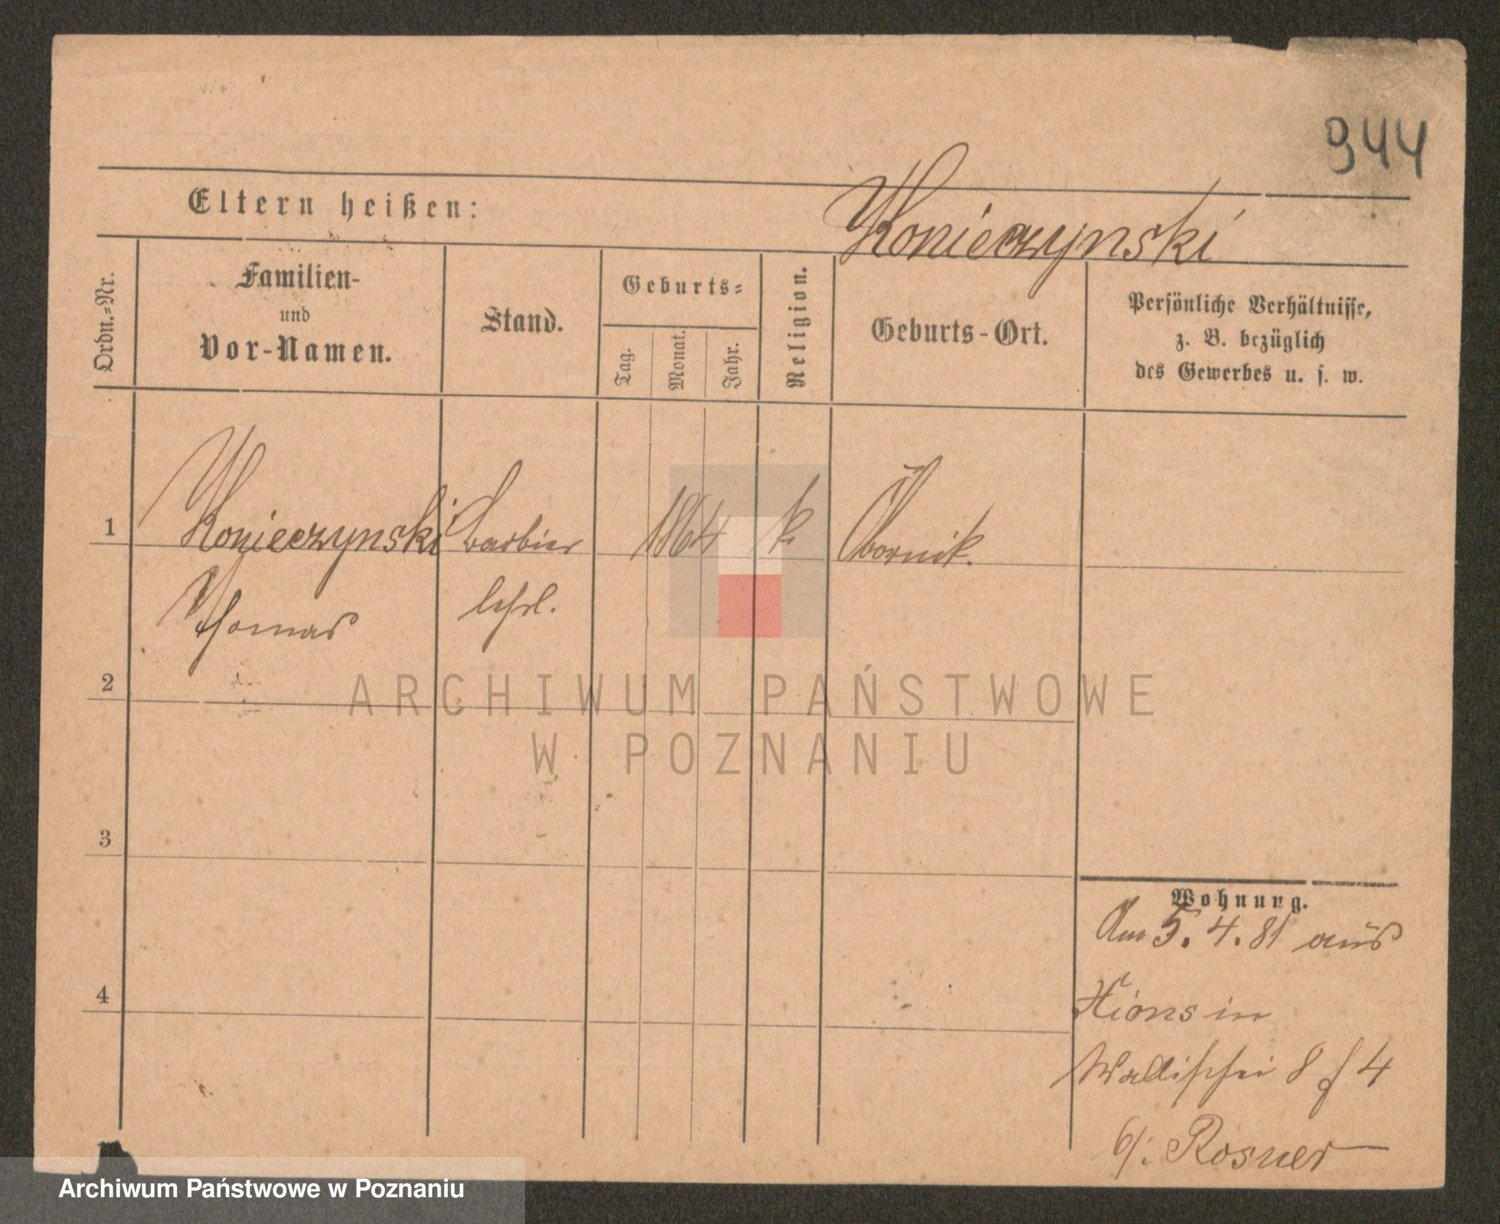 944
Eltern heißen:
Konieczynski
Ordn.-Nr.
Familien-
und
Vor-Namen.
Stand.
Geburts-
Tag.
Monat.
Jahr.
Religion.
Geburts-Ort.
Persönliche Verhältnisse,
z. B. bezüglich
des Gewerbes u. s. w.
1
Konieczynski Barbier 1864 k. Obornik.
Thomas lehrl.
2
ARCHIWUM PAŃSTWOWE
W POZNANIU
3
Wohnung.
Am 5. 4. 81 aus
4
Xions in
Wallischei 8 4
b/: Rosner
Archiwum Państwowe w Poznaniu